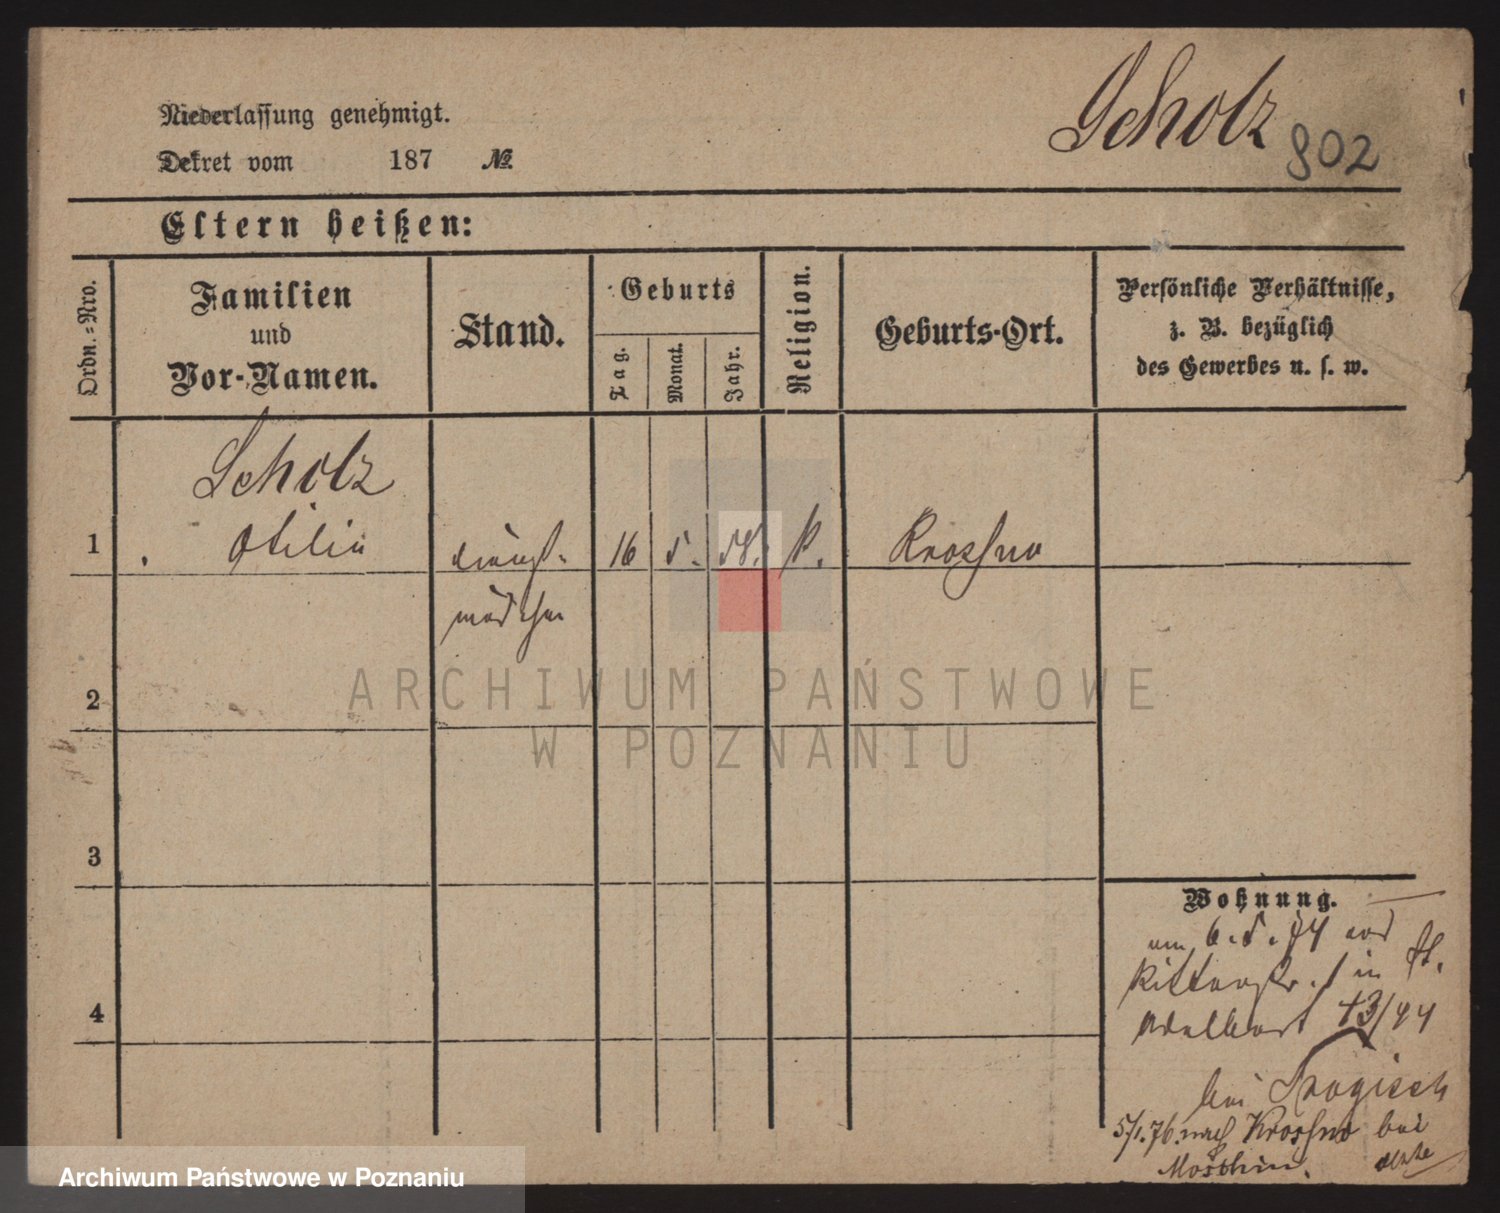 Scholz 802
Niederlassung genehmigt.
Dekret vom 187 №
Eltern heißen:
Ordn.=Nro.
Familien
und
Vor-Namen.
Stand.
Geburts
Tag.
Monat.
Jahr.
Religion.
Geburts-Ort.
Persönliche Verhältnisse,
z. B. bezüglich
des Gewerbes u. s. w.
Scholz
1 Otilie Dienst- 16 5. 58. k. Krosno
mädchen
ARCHIWUM PAŃSTWOWE
W POZNANIU
2
3
4
Wohnung.
am 6.5.74 von
Ritterstr. 1 in St.
Adalbert 43/44
bei
5/1.76. nach Krosno bei
Moschin.
Archiwum Państwowe w Poznaniu